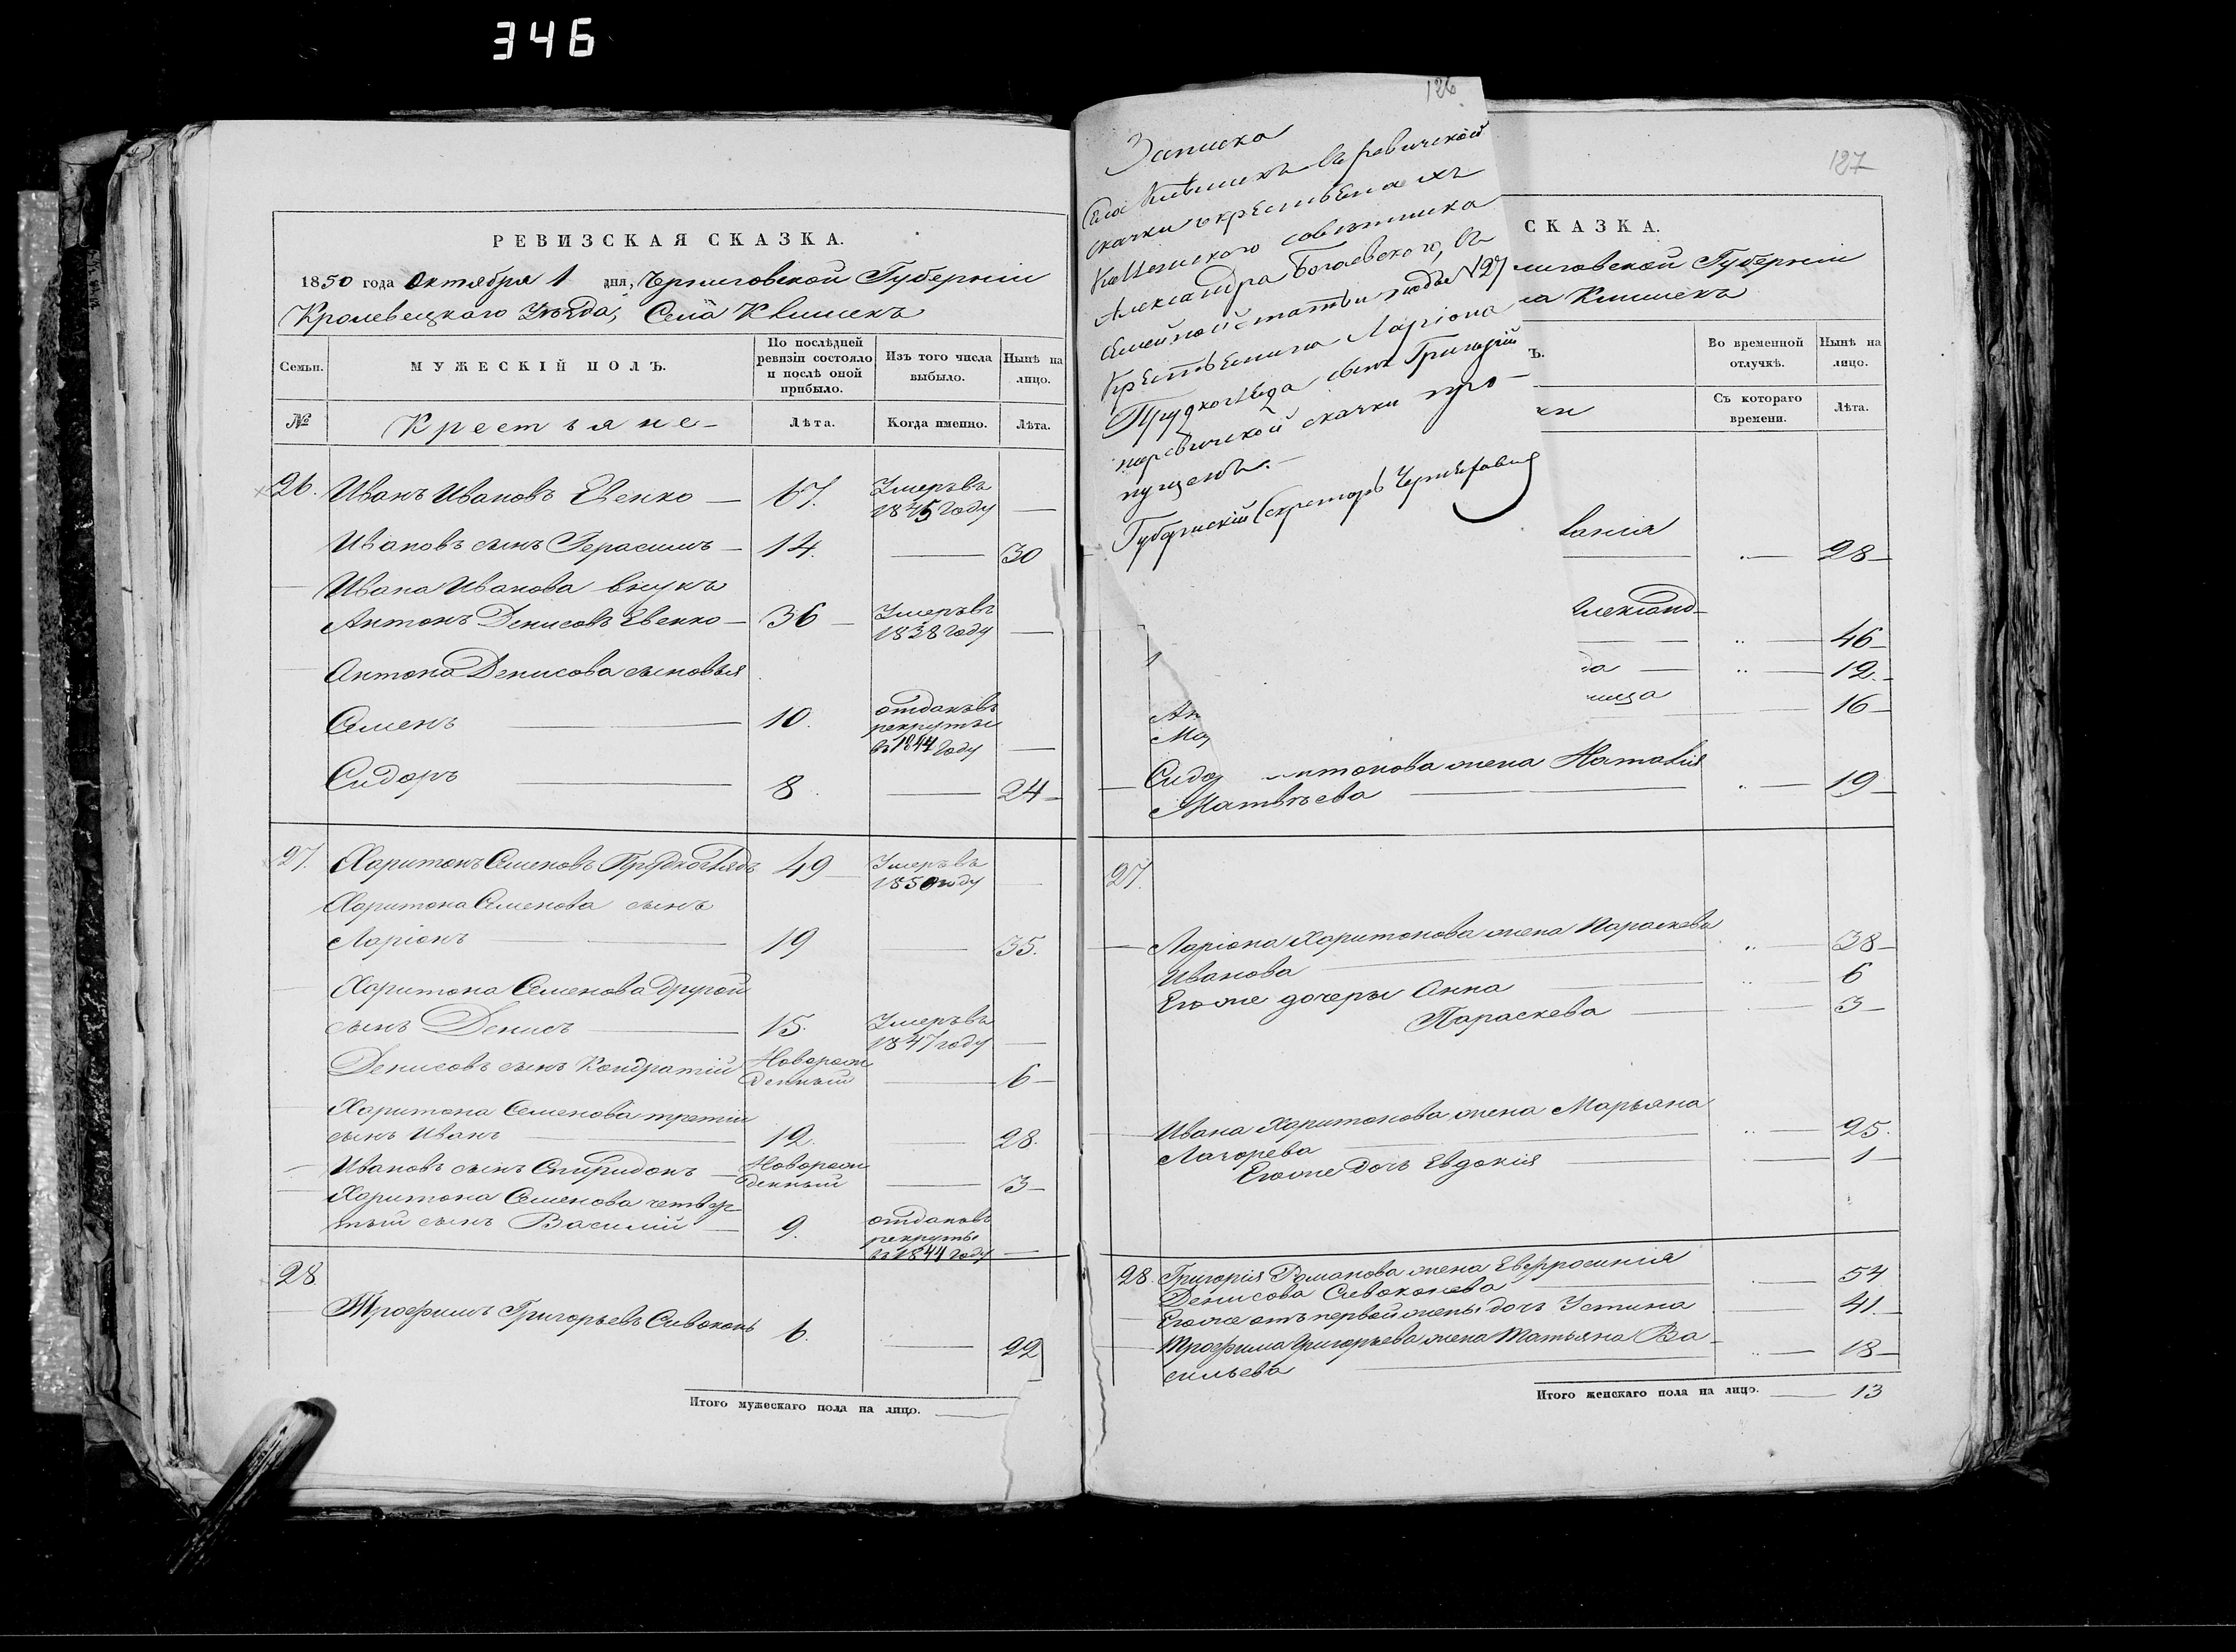 346
РЕВИЗСКАЯ СКАЗКА.
1850 года Октября 1 дня, Черниговской Губерніи
Кролевецкаго Уѣзда, Села Клишекъ
Семьи.
МУЖЕСКІЙ ПОЛЪ.
По послѣдней ревизіи состояло и послѣ оной прибыло.
Изъ того числа выбыло.
Нынѣ на лицо.
№
Крестьяне
Лѣта.
Когда именно.
Лѣта.
26. Иванъ Ивановъ Евенко — 67. Умеръ въ 1845 году —
Ивановъ сынъ Герасимъ — 14. — 30
Ивана Иванова внукъ
Антонъ Денисовъ Евенко — 36 — Умеръ въ 1838 году —
Антона Денисова сыновья
Семенъ — 10. отданъ въ рекруты въ 1844 году —
Сидоръ — 8. — 24 —
27. Харитонъ Семеновъ 49 Умеръ въ 1850 году —
Харитона Семенова сынъ
Ларіонъ — 19 — 35.
Харитона Семенова другой
сынъ Денисъ — 15. Умеръ въ 1847 году —
Денисовъ сынъ Кондратій Новорожденный — 6 —
Харитона Семенова третій
сынъ Иванъ — 12. — 28.
Ивановъ сынъ Спиридонъ — Новорожденный — 3 —
Харитона Семенова четвер-
тый сынъ Василій — 9. отданъ въ рекруты въ 1844 году —
28
Трофимъ Григорьевъ Сивоконь 6. — 22
Итого мужескаго пола на лицо. —
126
Записка
Села Клишекъ въ ревизской
скачки о крестьянахъ
совѣтника
Александра Богаевского, въ
семейной статьи подъ №27
Крестьянина Ларіона
сынъ Григорій
скачки про-
пущенъ. —
Губернскій Секретарь
127
СКАЗКА.
иговской Губерніи
ла Клишекъ
ъ.
Во временной отлучкѣ.
Нынѣ на лицо.
Съ котораго времени.
Лѣта.
ванія
— 28 —
Александ-
— 46 —
да — 12. —
ница 16 —
Ан
Мо
Сидо нтонова жена Наталія
Матвѣева — 19 —
27.
Ларіона Харитонова жена Параскева
Иванова — 38 —
Егоже дочери Анна — 6
Параскева — 3 —
Ивана Харитонова жена Марьяна
— 25.
Егоже дочь Евдокія — 1 —
28. Григорія Романова жена Евфросинія
Денисова Сивоконева — 54
Егоже отъ первой жены дочь Устина — 41 —
Трофима Григорьева жена Татьяна Ва-
сильева — 18 —
Итого женскаго пола на лицо. — 13